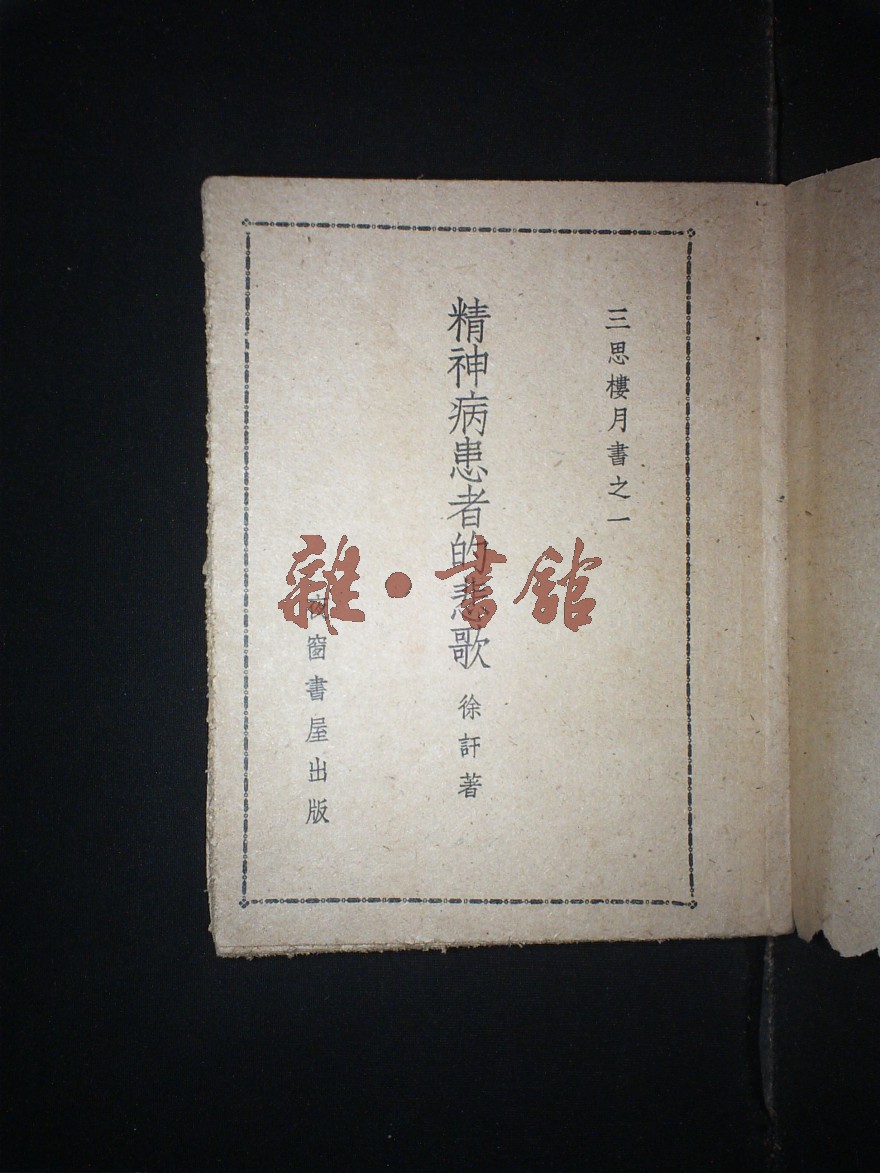 三思樓月書之一
精神病患者的悲歌
徐訏著
夜窗書屋出版
雜·書館